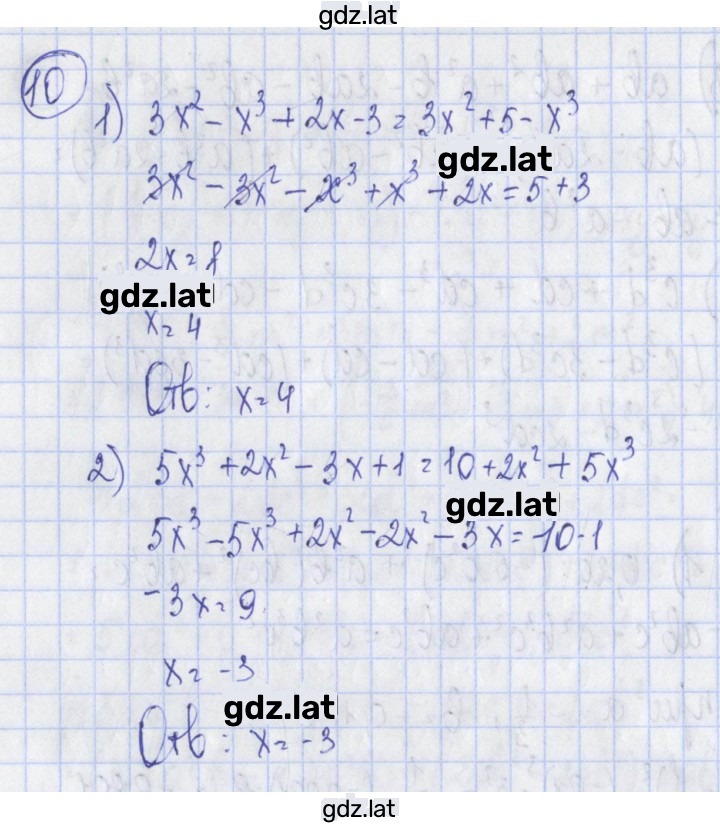 gdz.lat
10
1) 3x² - x³ + 2x - 3 = 3x² + 5 - x³
gdz.lat
3x² - 3x² - x³ + x³ + 2x = 5 + 3
2x = 8
gdz.lat
x = 4
Отв: x = 4
2) 5x³ + 2x² - 3x + 1 = 10 + 2x² + 5x³
gdz.lat
5x³ - 5x³ + 2x² - 2x² - 3x = 10 - 1
-3x = 9
x = -3
gdz.lat
Отв: x = -3
gdz.lat